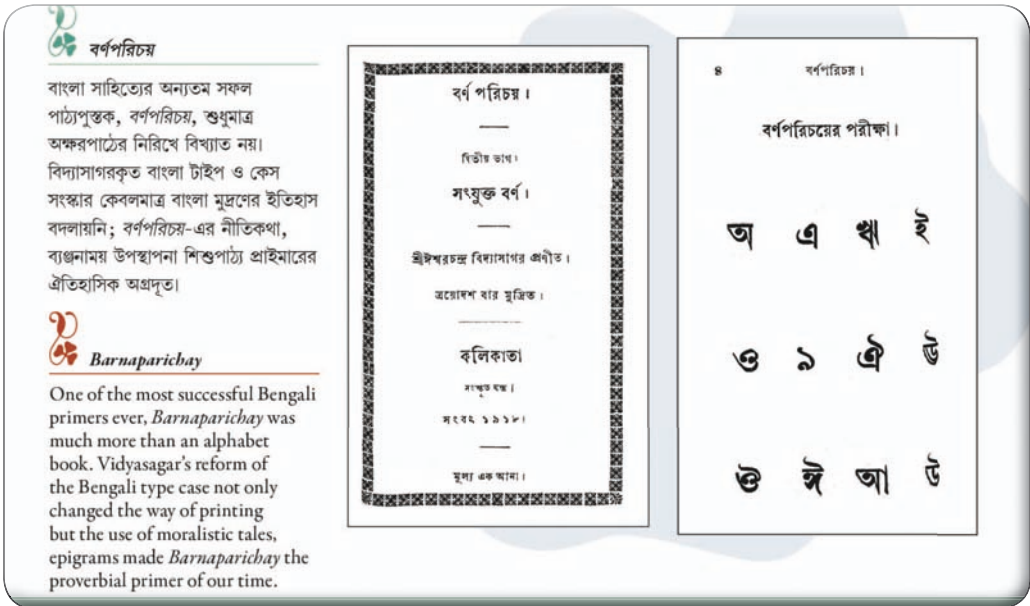 বর্ণপরিচয়
বাংলা সাহিত্যের অন্যতম সফল
পাঠ্যপুস্তক, বর্ণপরিচয়, শুধুমাত্র
অক্ষরপাঠের নিরিখে বিখ্যাত নয়।
বিদ্যাসাগরকৃত বাংলা টাইপ ও কেস
সংস্কার কেবলমাত্র বাংলা মুদ্রণের ইতিহাস
বদলায়নি; বর্ণপরিচয়-এর নীতিকথা,
ব্যঞ্জনাময় উপস্থাপনা শিশুপাঠ্য প্রাইমারের
ঐতিহাসিক অগ্রদূত।
Barnaparichay
One of the most successful Bengali
primers ever, Barnaparichay was
much more than an alphabet
book. Vidyasagar's reform of
the Bengali type case not only
changed the way of printing
but the use of moralistic tales,
epigrams made Barnaparichay the
proverbial primer of our time.
বর্ণ পরিচয়।
দ্বিতীয় ভাগ।
সংযুক্ত বর্ণ।
শ্রীঈশ্বরচন্দ্র বিদ্যাসাগর প্রণীত।
ত্রয়োদশ বার মুদ্রিত।
কলিকাতা
সংস্কৃত যন্ত্র।
সংবৎ ১৯১৮।
মূল্য এক আনা।
৪ বর্ণপরিচয়।
বর্ণপরিচয়ের পরীক্ষা।
অ এ ঋ ই
ও ঌ ঐ উ
ঔ ঈ আ উ